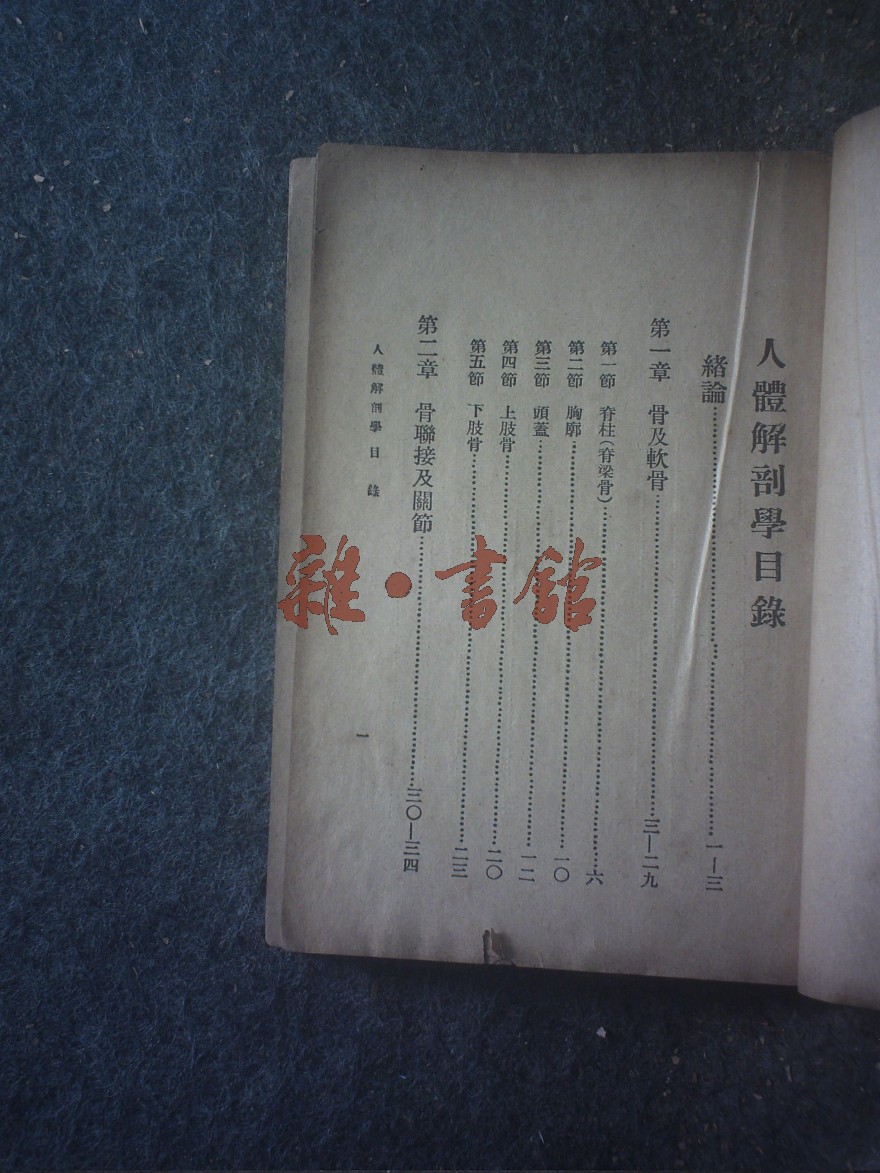 人體解剖學目錄
緒論……一—三
第一章　骨及軟骨……三—二九
第一節　脊柱(脊梁骨)……六
第二節　胸廓……一〇
第三節　頭蓋……一二
第四節　上肢骨……二〇
第五節　下肢骨……二三
第二章　骨聯接及關節……三〇—三四
人體解剖學　目錄
一
雜·書館